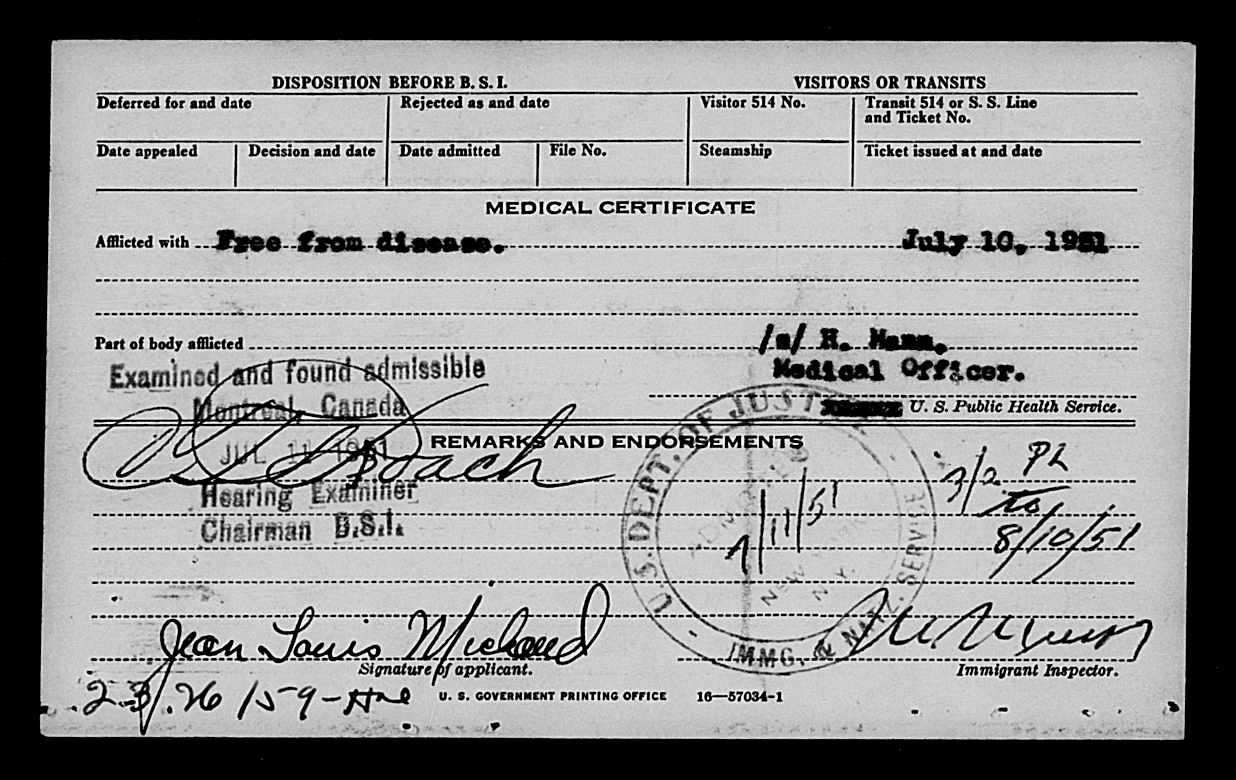 DISPOSITION BEFORE B. S. I. VISITORS OR TRANSITS
Deferred for and date Rejected as and date Visitor 514 No. Transit 514 or S. S. Line and Ticket No.
Date appealed Decision and date Date admitted File No. Steamship Ticket issued at and date
MEDICAL CERTIFICATE
Afflicted with Free from disease. July 10, 1951
Part of body afflicted /s/ H. Mann.
Medical Officer.
U. S. Public Health Service.
Examined and found admissible
Montreal, Canada
JUL 11 1951
Roach
Hearing Examiner
Chairman B.S.I.
REMARKS AND ENDORSEMENTS
U.S. DEPT. OF JUSTICE
IMMG. & NATZ. SERVICE
ADMITTED
7/11/51
NEW YORK
N.Y.
3/2 PL
to
8/10/51
Jean Louis Michaud
Signature of applicant. Immigrant Inspector.
U. S. GOVERNMENT PRINTING OFFICE 16—57034-1